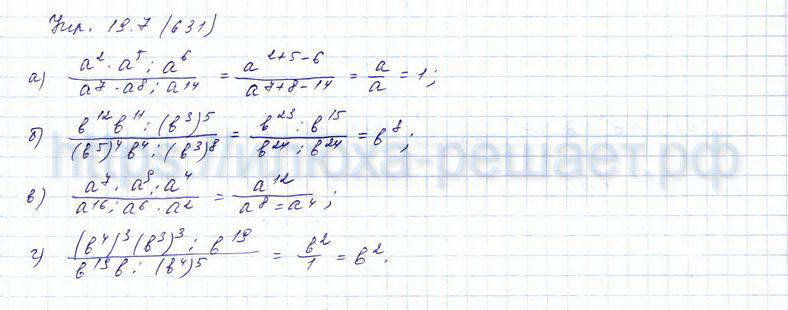 Упр. 19.7 (631)
а) a² · a⁵ : a⁶ / a⁷ · a⁸ : a¹⁴ = a²⁺⁵⁻⁶ / a⁷⁺⁸⁻¹⁴ = a / a = 1;
б) b¹²b¹¹ : (b³)⁵ / (b⁵)⁴b⁴ : (b³)⁸ = b²³ : b¹⁵ / b²⁴ : b²⁴ = b⁸;
в) a⁷ · a⁹ : a⁴ / a¹⁶ : a⁶ · a² = a¹² / a⁸ = a⁴;
г) (b⁴)³(b³)³ : b¹⁹ / b¹⁹b : (b⁴)⁵ = b² / 1 = b².